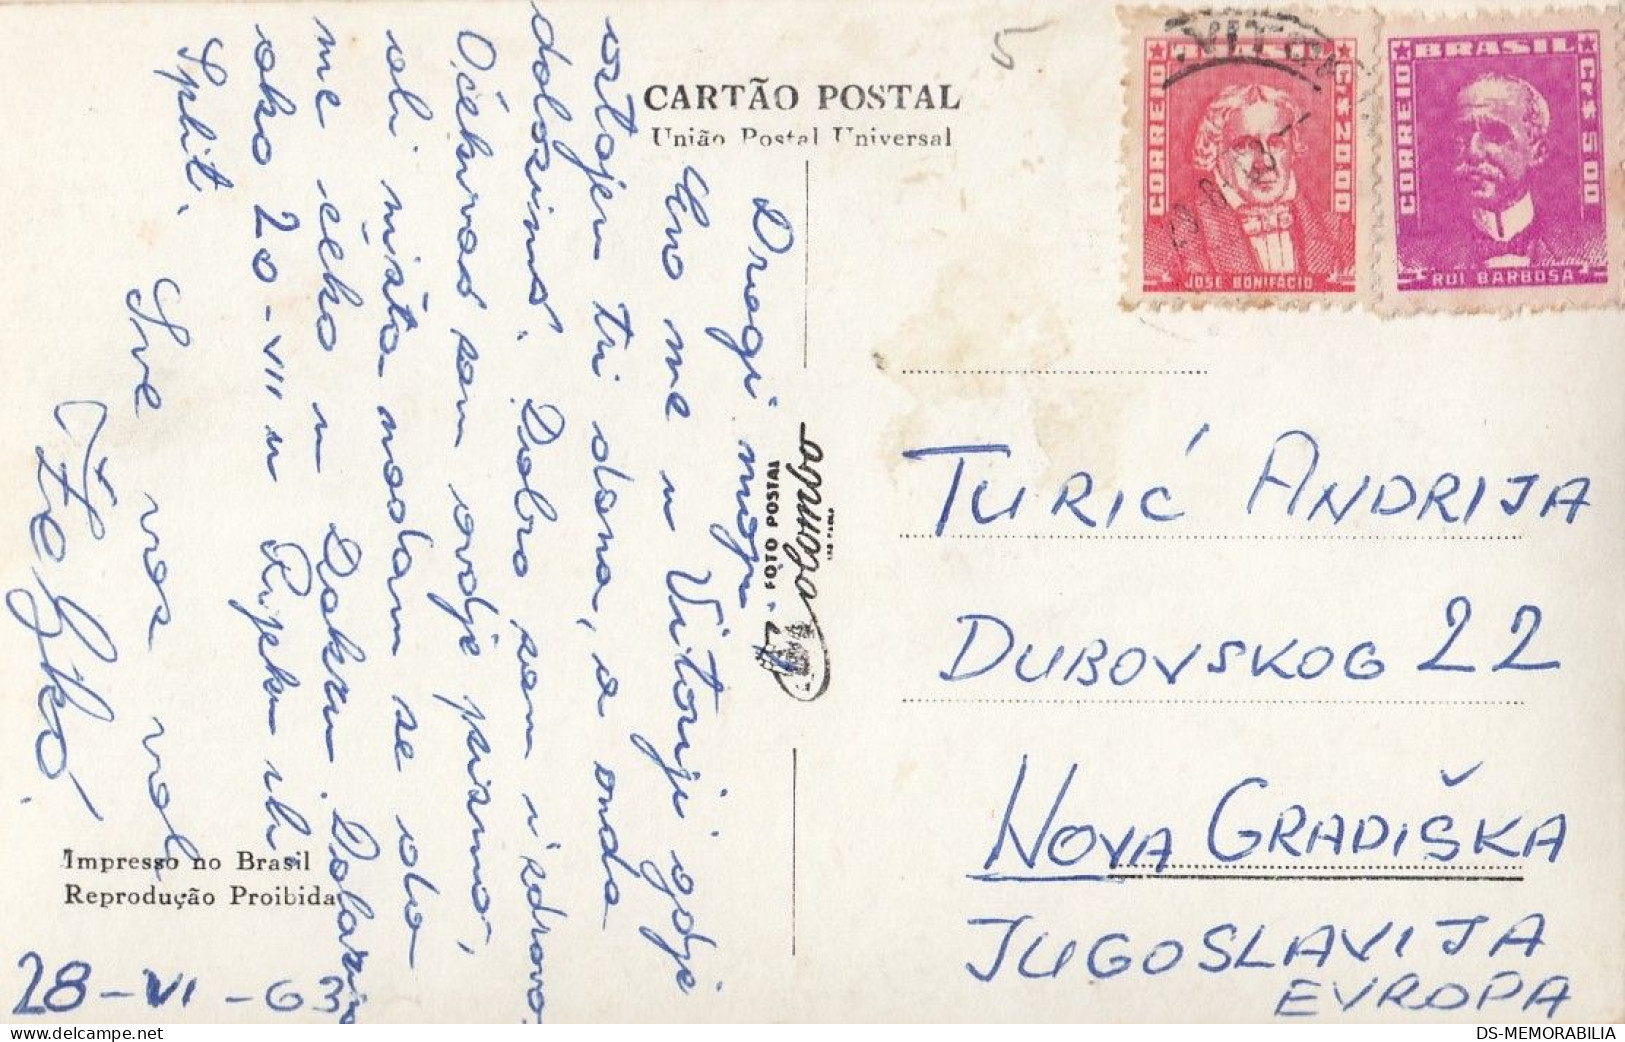 CARTÃO POSTAL
União Postal Universal
5
VITO
BRASIL
CORREIO
Cr$ 20.00
JOSE BONIFACIO
BRASIL
CORREIO
Cr$ 5.00
RUI BARBOSA
Dragi moji
Evo me u Vitoriji gdje
ostajem tri dana, a onda
dolazim. Dobro sam i zdravo.
Očekivao sam ovdje pismo,
ali ništa nadam se da
me čeka u Dakru. Dolazim
oko 20-VII u Rijeku ili
Split.
Sve vas voli
Željko.
28-VI-63
Impresso no Brasil
Reprodução Proibida
FOTO POSTAL
Colombo
SÃO PAULO
TURIĆ ANDRIJA
DUBOVSKOG 22
NOVA GRADIŠKA
JUGOSLAVIJA
EVROPA
DS-MEMORABILIA